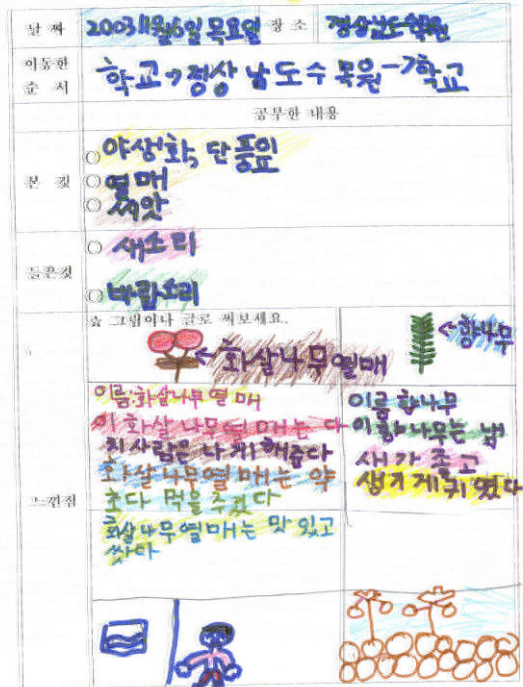 날짜 2003 11월 6일 목요일 장소 경상남도수목원
이동한 순서 학교→경상남도수목원→학교
공부한 내용
본 것
○ 야생화, 단풍잎
○ 열매
○ 씨앗
들은것
○ 새소리
○ 바람소리
느낀점
☆ 그림이나 글로 써보세요.
←화살나무열매
이름:화살나무열매
이 화살나무열매는 다
친사람은 나게해준다
화살나무열매는 약
초다 먹을수있다
화살나무열매는 맛있고
싸다
←향나무
이름 향나무
이향나무는 냄
새가 좋고
생기게귀였다